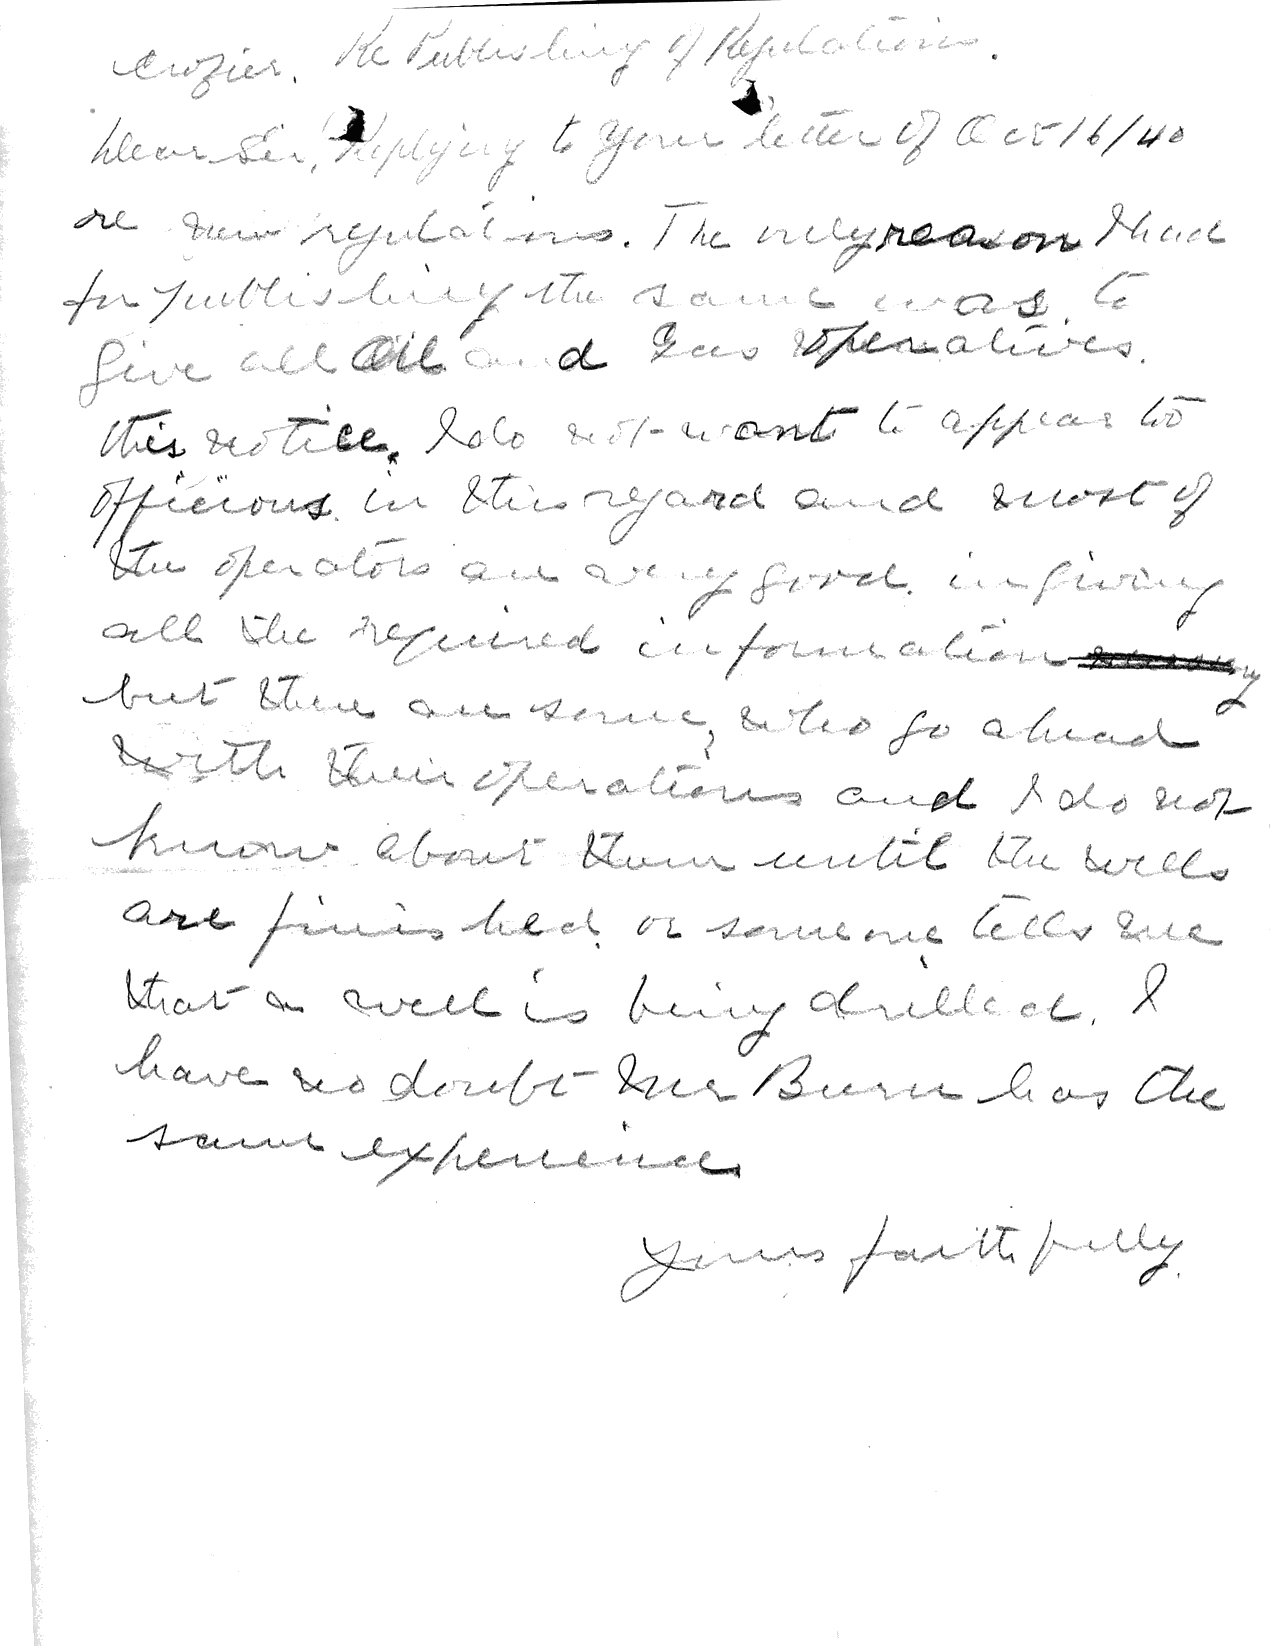 Crozier. Re Publishing of Regulations.
Dear Sir, Replying to your letter of Oct 16/40
re new regulations. The only reason I had
for publishing the same was to
give all Oil and Gas operatives.
this notice. I do not want to appear to
"officious" in this regard and most of
the operators are very good in giving
all the required information
but there are some, who go ahead
with their operations and I do not
know about them until the wells
are finished or someone tells me
that a well is being drilled. I
have no doubt Mr Burn has the
same experience
Yours faithfully.